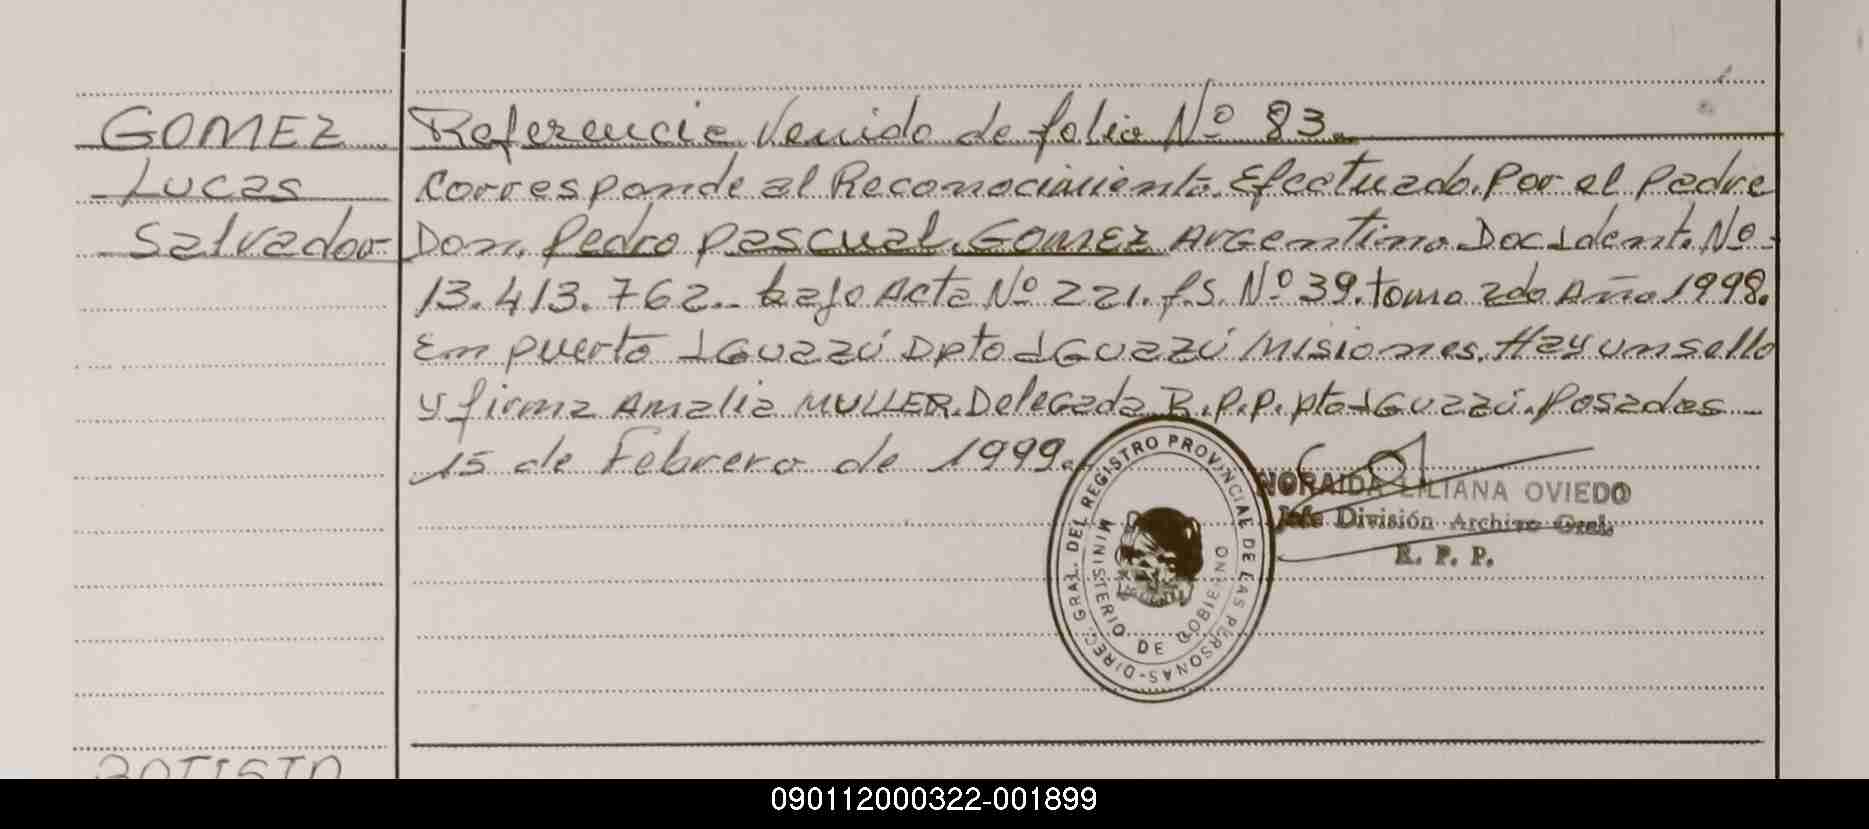 GOMEZ
Lucas
Salvador
Referencia Venido de folio Nº 83.
Corresponde al Reconocimiento Efectuado. Por el padre
Don. Pedro Pascual. GOMEZ Argentino. Doc Ident. Nº
13.413.762.. bajo Acta Nº 221. fs. Nº 39. tomo 2do Año 1998.
En puerto IGUAZÚ Dpto IGUAZÚ Misiones. Hay un sello
y firma Amalia MULLER. Delegada R.P.P. pto IGUAZÚ. Posadas
15 de Febrero de 1999.
DIREC. GRAL. DEL REGISTRO PROVINCIAL DE LAS PERSONAS-
MINISTERIO DE GOBIERNO
NORAIDA LILIANA OVIEDO
Jefe División Archivo Gral.
R. P. P.
090112000322-001899